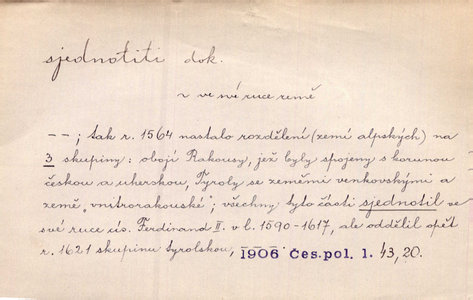 sjednotiti dok.
~ ve své ruce země
– – ; tak r. 1564 nastalo rozdělení (zemí alpských) na
3 skupiny: obojí Rakousy, jež byly spojeny s korunou
českou a uherskou, Tyroly se zeměmi venkovskými a
země „vnitrorakouské"; všechny tyto části sjednotil ve
své ruce cís. Ferdinand II. v l. 1590-1617, ale oddělil opět
r. 1621 skupinu tyrolskou, – – – – 1906 Čes. pol. 1. 43, 20.